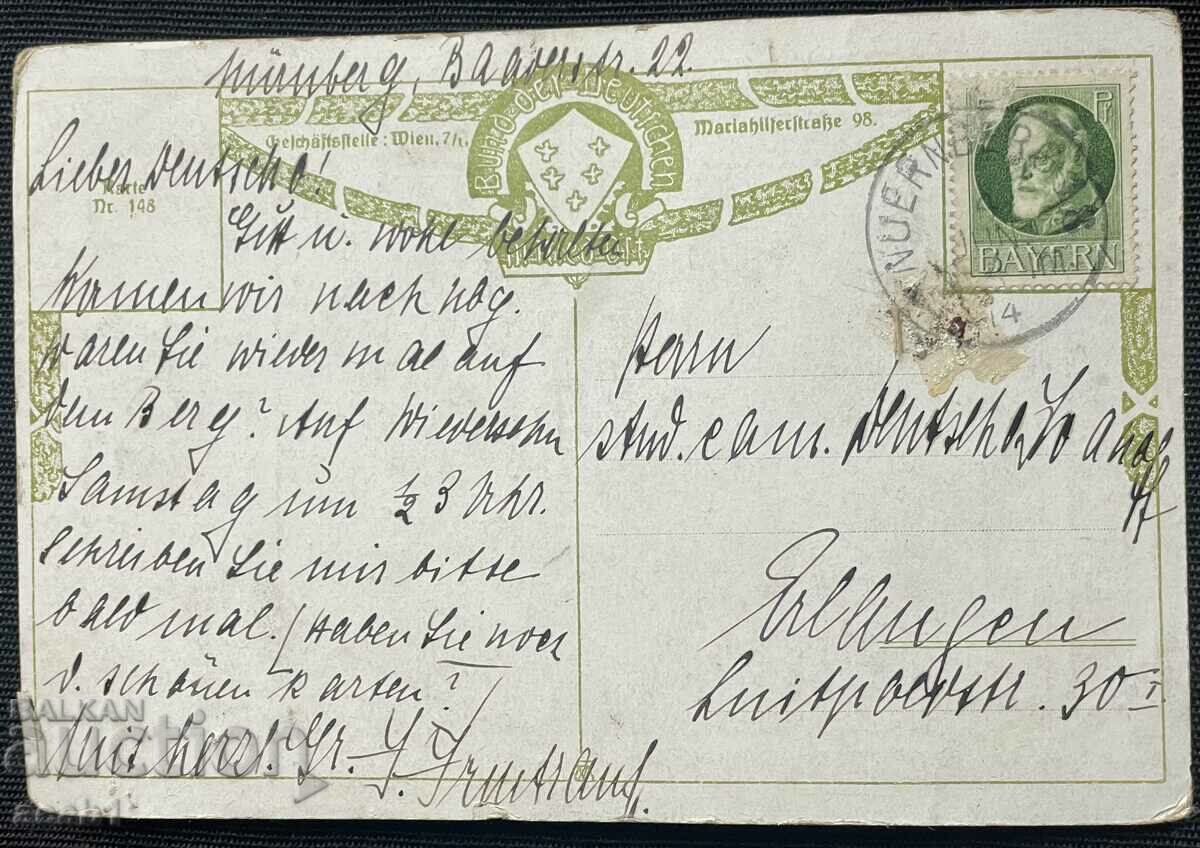 Nürnberg, Baaderstr. 22.
Bund der Deutschen
Geschäftsstelle: Wien, 7/1,
Mariahilferstraße 98.
Karte
Nr. 148
BAYERN
NUERNBERG
14
Lieber Deutscho!
Gutt u. wohl behalten
kamen wir nach Nbg.
waren Sie wieder mal auf
dem Berg? Auf Wiedersehn
Samstag um ½ 3 Uhr.
Schreiben Sie mir bitte
bald mal. (Haben Sie noch
d. schönen Karten?
Mit herzl. Gr.
Irmtraud.
Herrn
stud. cam.
Erlangen
Luitpoldstr. 30 I
BALKAN
auction